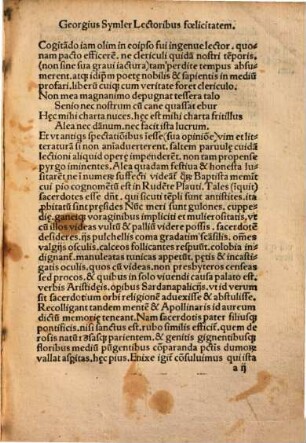 Georgius Symler Lectoribus fœlicitatem.
Cogitãdo iam olim in eoipso fui ingenue lector. quo-
nam pacto efficerẽ. ne clericuli quidã nostri tẽporis,
(non sine sua graui iactura) tam perdite tempus absu-
merent. atq; idip̃m poetę nobilis & sapientis in mediũ
profari. liberũ cuiq; cum veritate foret clericulo.
Non mea magnanimo depugnat tessera talo
Senio nec nostrum cũ cane quassat ebur
Hęc mihi charta nuces. hęc est mihi charta fritillus
Alea nec dãnum, nec facit ista lucrum.
Et vt antiqi spectatiōibus iesse (sua opiniõe) vim et lit-
teraturã si non aniaduerterent. saltem paruulę cuidã
lectioni aliquid operę impenderẽt. non tam propense
pyrgo iminentes. Alea quadam festiua & honesta lu-
sitarẽt ne i numerẽ suffecti videãt Baptista memi-
cui pio cognomẽtũ est in Rudẽte Plauti. Tales (iquit)
sacerdotes esse dñt. qui sicuti tẽpli sunt antistites. ita
p̃bitatis sint pręsides Nec meri sunt gulones. cuppe-
dię. ganeęq; voraginibus impliciti et mulierositatis, vt
cũ illos videas vultũ & palliũ videre possis. sacerdotẽ
desideres. ijs pulchellis coma gradatim sectilis. omes
valgijs osculis. calceos follicantes respuũt. colobia in-
dignant. manuleatas tunicas appetũt. petis & incasti-
gatis oculis, quos cũ videas. non presbyteros censeas
sed procos. & quibus in solo viuendi causa palato est.
verbis Aristidęs, opibus Sardanapalicijs. vt id verum
sit sacerdotium orbi religionẽ aduexisse & abstulisse.
Recolligant tandem mentẽ & Apollinaris id aureum
dictũ memorię teneant. Nam sacerdotis pater filiusq;
pontificis. nisi sanctus est. rubo similis efficit. quem de
rosis natũ asq; parientem. & genitis gignentibusq;
floribus mediũ pũgentibus cõparanda pctis dumorʒ
vallat aspitas, hęc pius. Enixe igit cõsuluimus qui ista
a ij